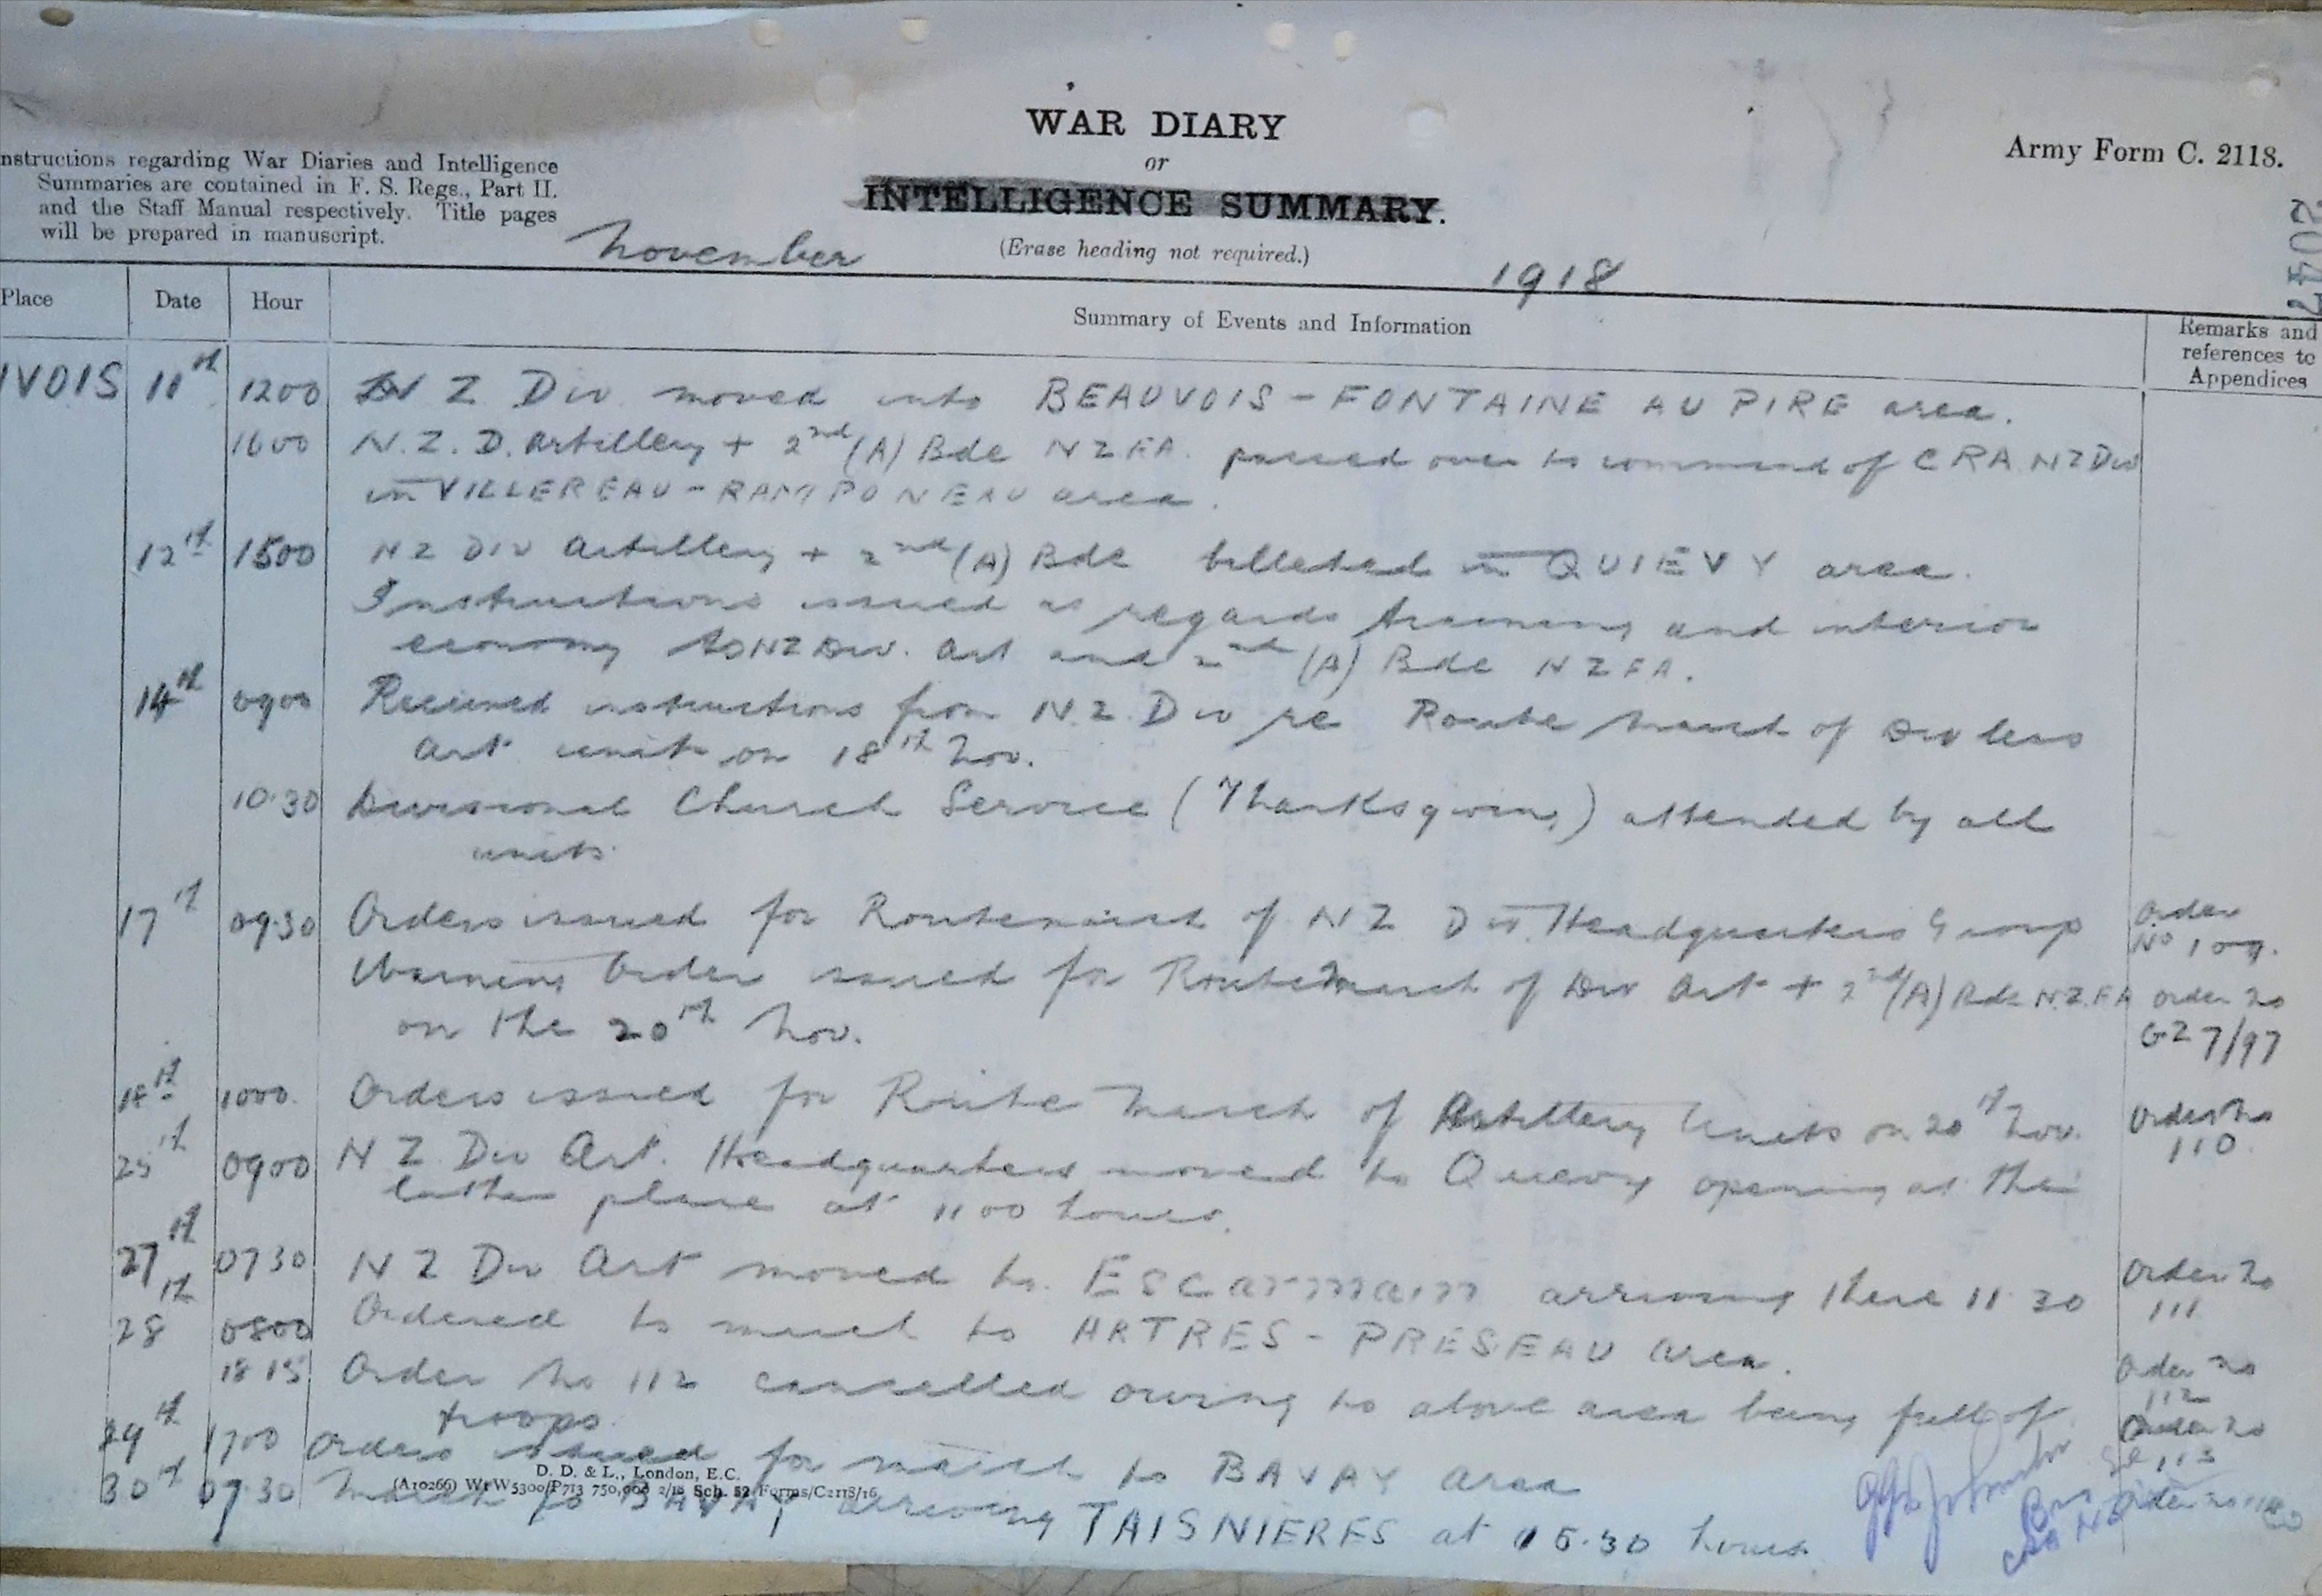 WAR DIARY
or
INTELLIGENCE SUMMARY.
(Erase heading not required.)
Army Form C. 2118.
nstructions regarding War Diaries and Intelligence
Summaries are contained in F. S. Regs., Part II.
and the Staff Manual respectively. Title pages
will be prepared in manuscript.
November 1918
2047
Place Date Hour Summary of Events and Information Remarks and
references to
Appendices
IVOIS 11th 1200 N Z Div. moved into BEAUVOIS - FONTAINE AU PIRE area.
1600 N. Z. D. Artillery + 2nd (A) Bde NZFA. passed over to command of CRA NZ Div
in VILLEREAU - RAMPONEAU area.
12th 1500 NZ Div Artillery + 2nd (A) Bde billeted in QUIEVY area.
Instructions issued as regards training and interior
economy to NZ Div. Art and 2nd (A) Bde NZFA.
14th 0900 Received instructions from N.Z. Div re Route March of Div less
Art units on 18th Nov.
10.30 Divisional Church Service (Thanksgiving) attended by all
units.
17th 09.30 Orders issued for Routemarch of NZ Div. Headquarters Group Order
No 109.
Warning Order issued for Routemarch of Div Art + 2nd (A) Bde N.Z.FA Order no
on the 20th Nov. GZ 7/97
18th 1000. Orders issued for Route March of Artillery Units on 20th Nov. Order No
110
25th 0900 N Z Div Art. Headquarters moved to Quievy opening at the
latter place at 1100 hours.
27th 0730 N Z Div Art moved to Escarmain arriving there 11.30 Order No
111
28th 0800 Ordered to march to ARTRES - PRESEAU area. Order no
112
18 15 Order No 112 cancelled owing to above area being full of
troops.
29th 1700 Orders issued for march to BAVAY area Order no
113
30th 07.30 March to BAVAY arriving TAISNIERES at 15.30 hours
D. D. & L., London, E.C.
(A10266) Wt W5300/P713 750,000 2/18 Sch. 52 Forms/C2118/16.